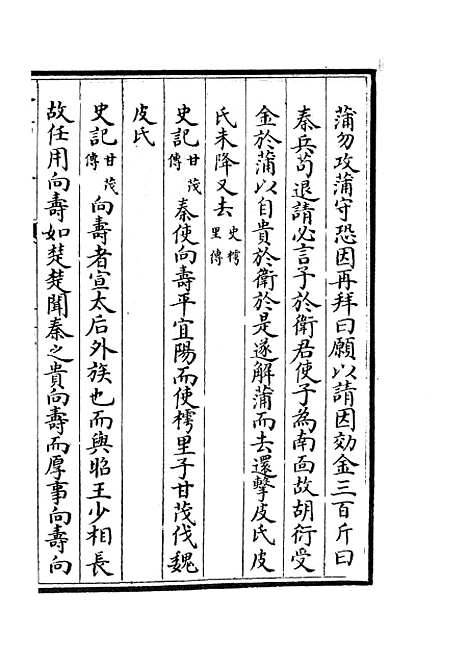 蒲勿攻蒲守恐因再拜曰願以請因効金三百斤曰
秦兵茍退請必言子於衛君使子為南面故胡衍受
金於蒲以自貴於衛於是遂解蒲而去還擊皮氏皮
氏未降又去史樗里傳
史記甘茂傳秦使向壽平宜陽而使樗里子甘茂伐魏
皮氏
史記甘茂傳向壽者宣太后外族也而與昭王少相長
故任用向壽如楚楚聞秦之貴向壽而厚事向壽向